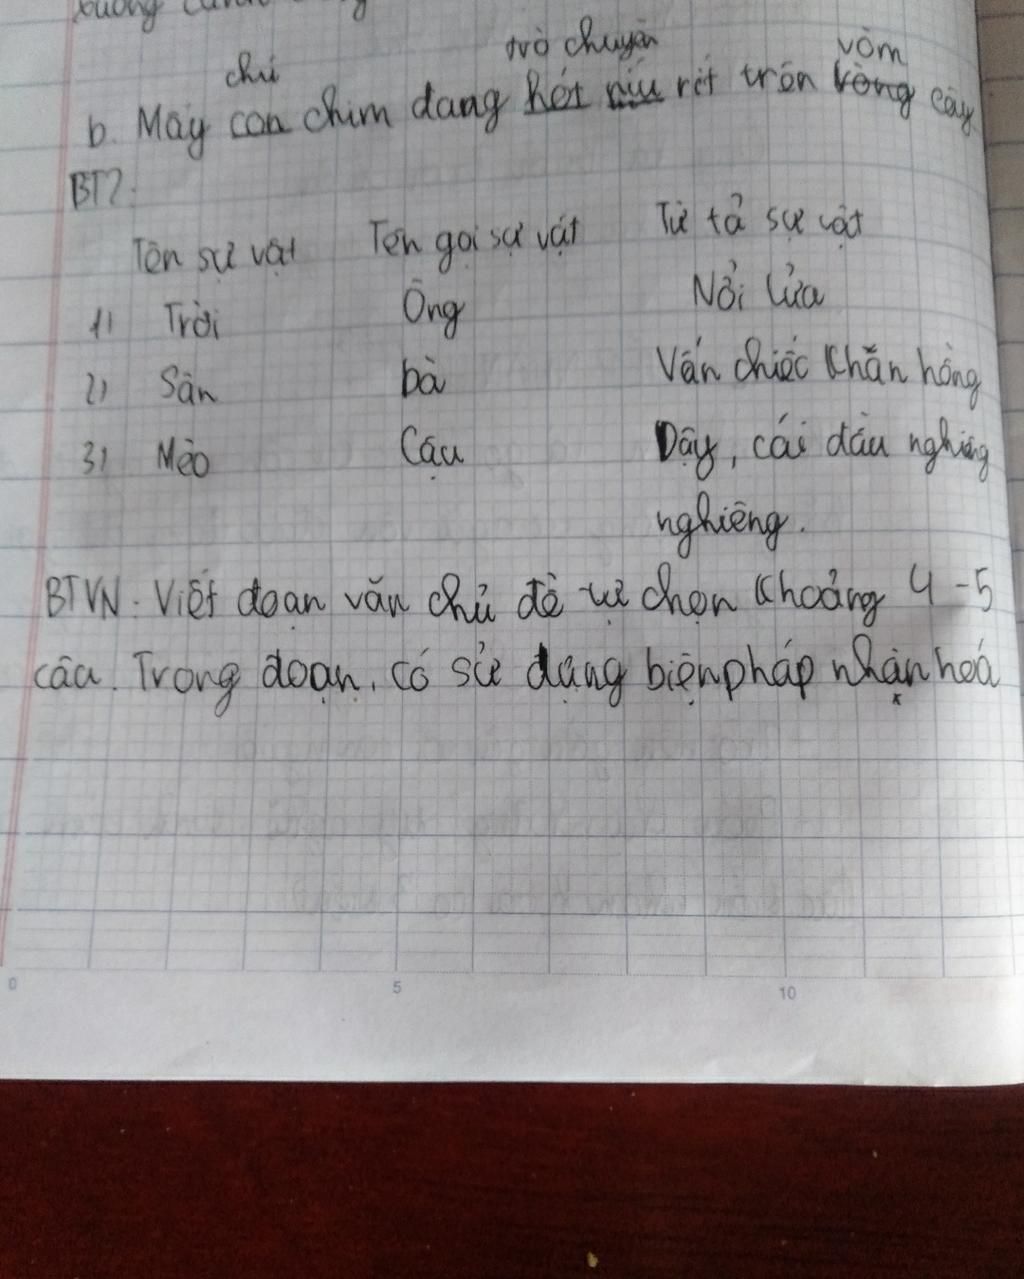 chú trò chuyện vòm
b. Mấy con chim đang hót ríu rít trên vòng cây
BT2:
Tên sự vật Tên gọi sự vật Từ tả sự vật
1) Trời Ông Nổi lửa
2) Sân bà Vấn chiếc khăn hồng
3) Mèo Cậu Dậy, cái đầu nghiêng
nghiêng.
BTVN: Viết đoạn văn chủ đề tự chọn khoảng 4-5
câu. Trong đoạn, có sử dụng biện pháp nhận hoá
0 5 10